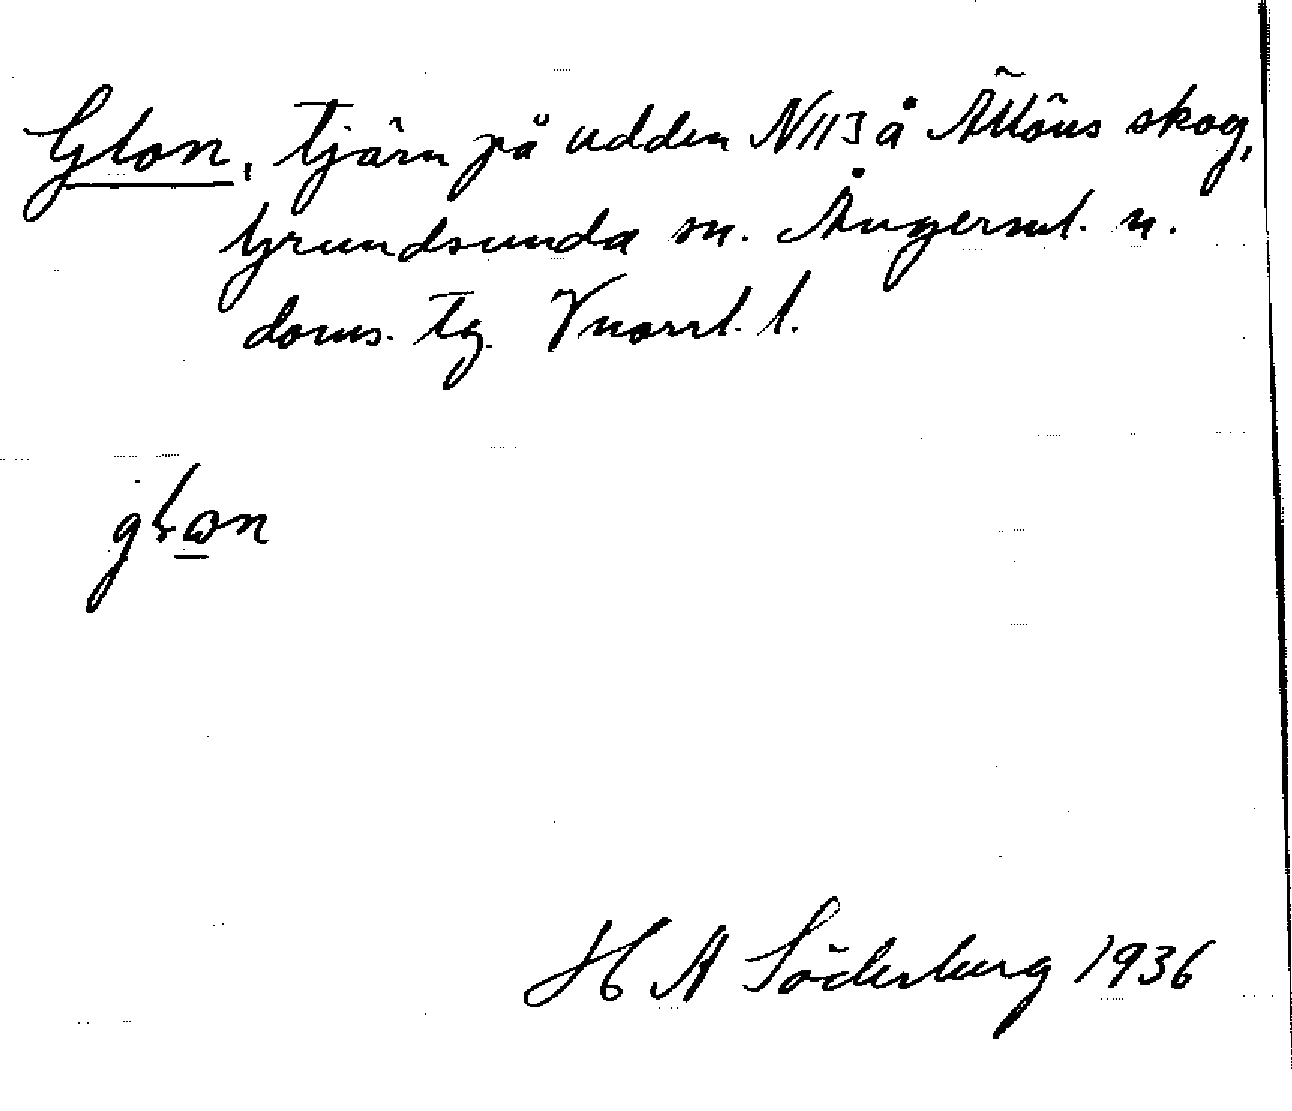 Glon, tjärn på udden N 113 å Ällöns skog,
Grundsunda sn. Ångerml. n.
doms. tg. Vnorrl. l.
glɷn
H A Söderberg 1936